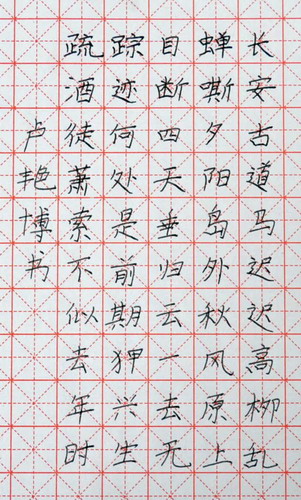 长安古道马迟迟高柳乱
蝉嘶夕阳岛外秋风原上
目断四天垂归云一去无
踪迹何处是前期狎兴生
疏酒徒萧索不似去年时
卢艳博书